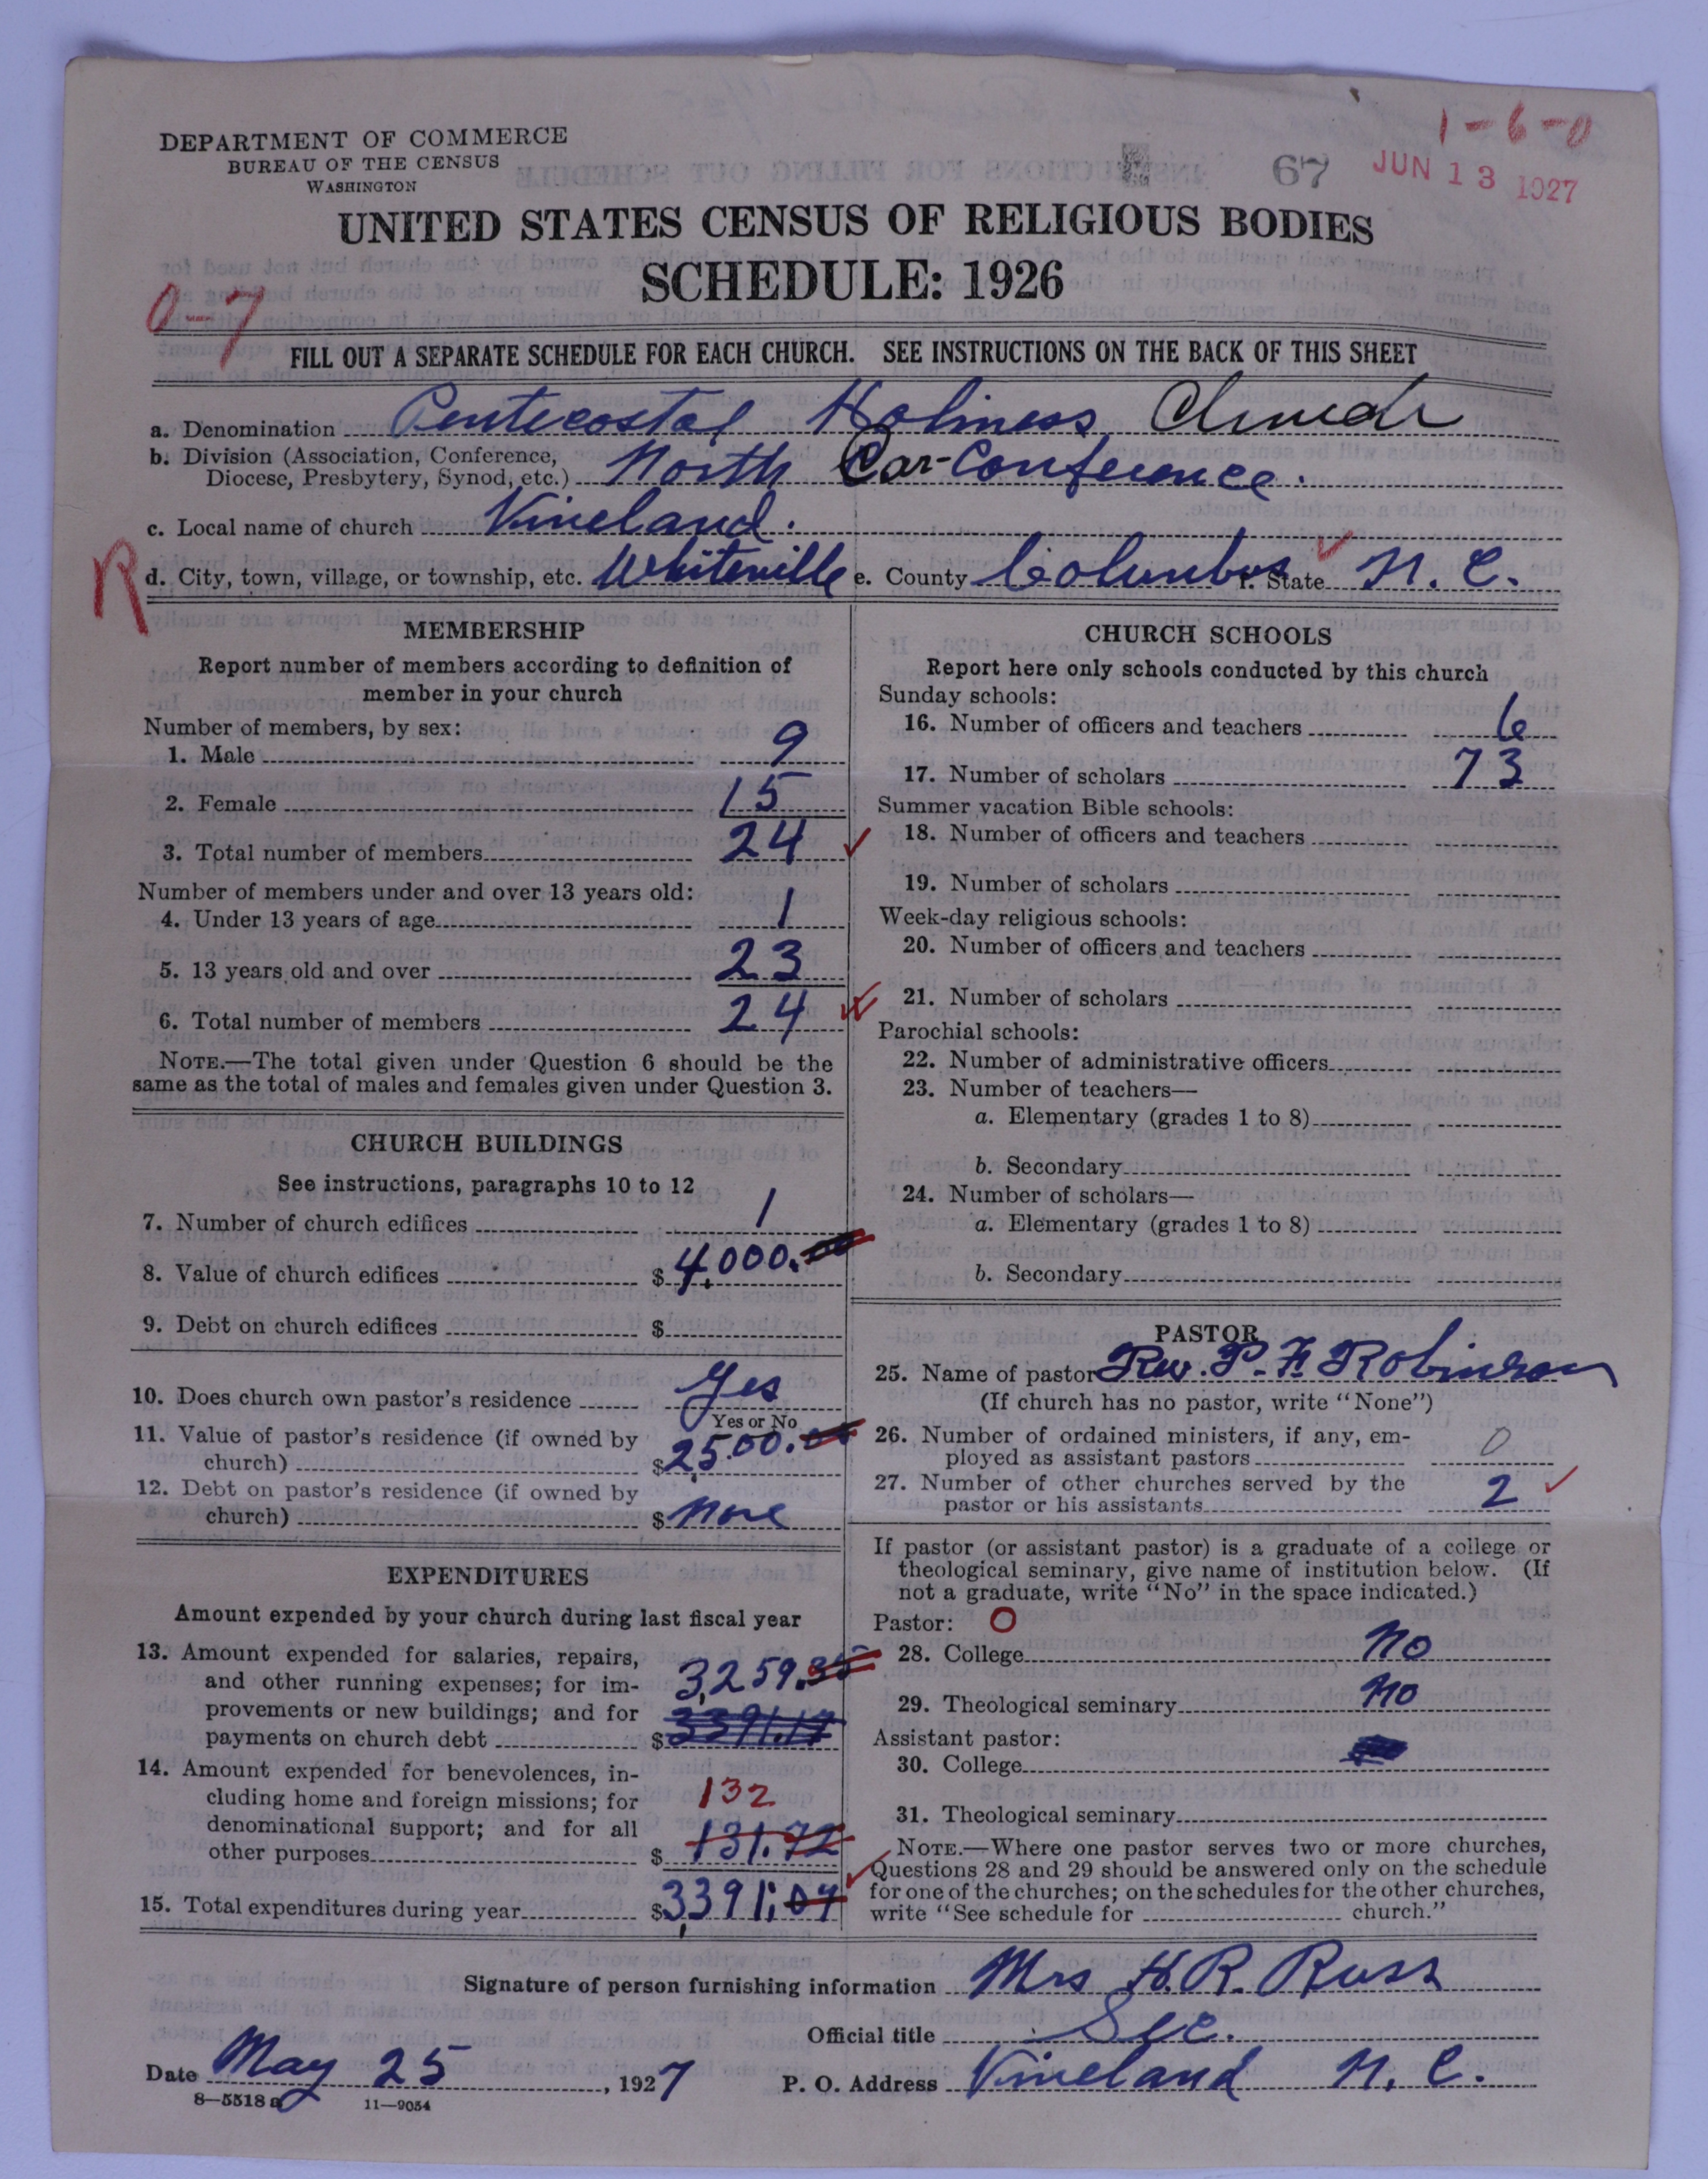 1-6-0
DEPARTMENT OF COMMERCE
BUREAU OF THE CENSUS
WASHINGTON
67
JUN 13 1927
UNITED STATES CENSUS OF RELIGIOUS BODIES
SCHEDULE: 1926
0-7
FILL OUT A SEPARATE SCHEDULE FOR EACH CHURCH. SEE INSTRUCTIONS ON THE BACK OF THIS SHEET
a. Denomination Pentecostal Holiness Church
b. Division (Association, Conference,
Diocese, Presbytery, Synod, etc.) North Car-Conference.
c. Local name of church Vineland.
R
d. City, town, village, or township, etc. Whiteville e. County Columbus f. State N. C.
MEMBERSHIP
Report number of members according to definition of
member in your church
Number of members, by sex:
1. Male 9
2. Female 15
3. Total number of members 24
Number of members under and over 13 years old:
4. Under 13 years of age 1
5. 13 years old and over 23
6. Total number of members 24
NOTE.—The total given under Question 6 should be the
same as the total of males and females given under Question 3.
CHURCH BUILDINGS
See instructions, paragraphs 10 to 12
7. Number of church edifices 1
8. Value of church edifices $4,000.
9. Debt on church edifices $
10. Does church own pastor's residence Yes
Yes or No
11. Value of pastor's residence (if owned by
church) $2500.
12. Debt on pastor's residence (if owned by
church) $None
EXPENDITURES
Amount expended by your church during last fiscal year
13. Amount expended for salaries, repairs,
and other running expenses; for im-
provements or new buildings; and for
payments on church debt $
3,259.35
3391.17
14. Amount expended for benevolences, in-
cluding home and foreign missions; for
denominational support; and for all
other purposes $
132
131.72
15. Total expenditures during year $3,391.07
CHURCH SCHOOLS
Report here only schools conducted by this church
Sunday schools:
16. Number of officers and teachers 6
17. Number of scholars 73
Summer vacation Bible schools:
18. Number of officers and teachers
19. Number of scholars
Week-day religious schools:
20. Number of officers and teachers
21. Number of scholars
Parochial schools:
22. Number of administrative officers
23. Number of teachers—
a. Elementary (grades 1 to 8)
b. Secondary
24. Number of scholars—
a. Elementary (grades 1 to 8)
b. Secondary
PASTOR
25. Name of pastor Rev. P. F. Robinson
(If church has no pastor, write "None")
26. Number of ordained ministers, if any, em-
ployed as assistant pastors 0
27. Number of other churches served by the
pastor or his assistants 2
If pastor (or assistant pastor) is a graduate of a college or
theological seminary, give name of institution below. (If
not a graduate, write "No" in the space indicated.)
Pastor: O
28. College No
29. Theological seminary No
Assistant pastor:
30. College
31. Theological seminary
NOTE.—Where one pastor serves two or more churches,
Questions 28 and 29 should be answered only on the schedule
for one of the churches; on the schedules for the other churches,
write "See schedule for church."
Signature of person furnishing information Mrs H. R. Russ
Official title Sec.
Date May 25, 1927
P. O. Address Vineland N. C.
8—5518 a
11—9054